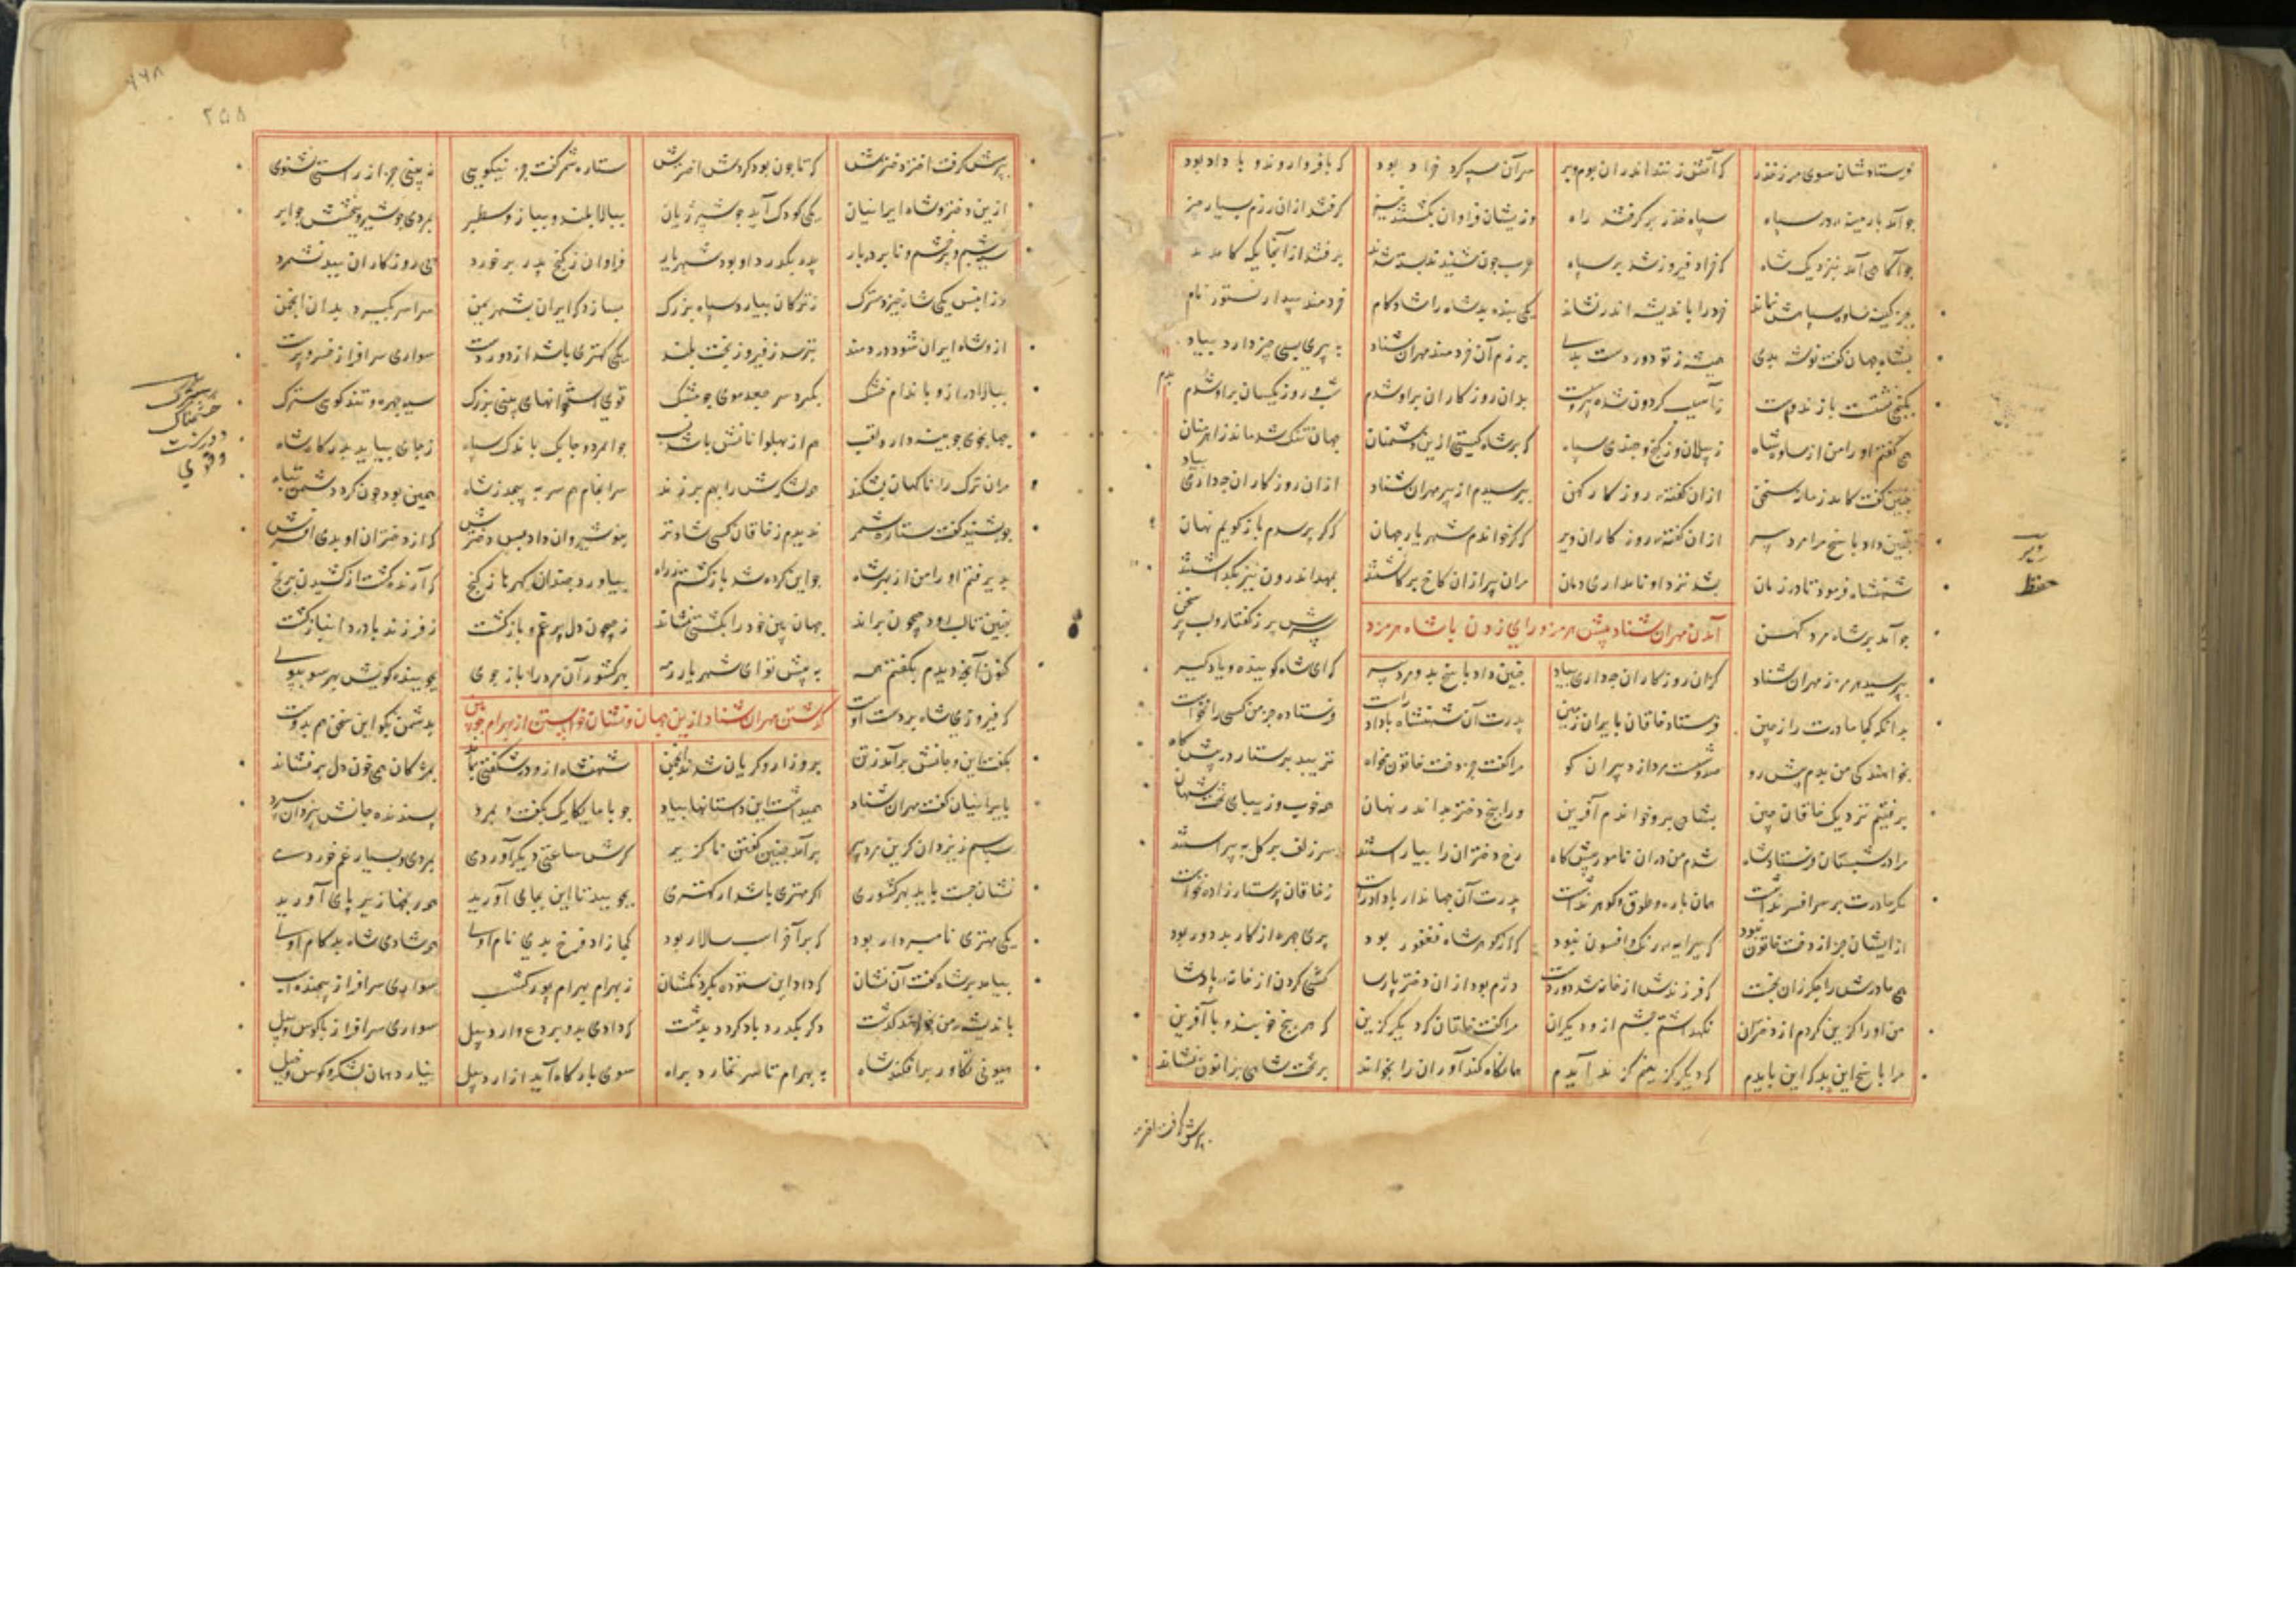 فرستادشان سوی مرز خزر که آتش زنند اندران بوم وبر سر آن سپه کرد خراد بود که با فر و اروند و با داد بود
چو آمد بارمینه در سپاه سپاه خزر بر گرفتند راه وزیشان فراوان بکشتند نیز گرفتند ازان رزم بسیار چیز
چو آگاهی آمد بنزدیک شاه که خراد فیروز شد بر سپاه
بجز کینه ساوه شاهش نماند خرد را باندیشه اندر نشاند یکی بنده بد شاه را شادکام خردمند و بیدار نستوه نام
بشاه جهان گفت نوشه بدی همیشه ز تو دور دست بدی پدرم آن خردمند مهران شتاد به پیری بسی چیز دارد بیاد
بکنجی نشستست با زند و است ز آسیب گردون شده بدان روزگاران بر او شدم شب و روز یکسان بر او شدم
همی گفتم او را من از ساوه شاه ز پیلان و ز گنج و چندی سپاه که بر شاه گیتی ازین دشمنان جهان تنگ شد
چنین گفت کامد زمان سخن ازان گفته روزگار کهن بپرسیدم از پیر مهران شتاد ازان روزگاران چه داری بیاد
چنین داد پاسخ مرا مرد پیر ازان گفته روزگاران ویر که گر خواندم شهریار جهان که گر پرسدم بازگویم نهان
شهنشاه فرمود تا در زمان بشد نزد او نامداری دمان مران پیر ازان کاخ برداشتند بمهد اندرون تیز بگذاشتند
آمدن مهران شتاد پیش هرمز و رای زدن با شاه هرمزد
چو آمد بر شاه مرد کهن سرش پر ز گفتار و لب پر سخن
بپرسید هرمز ز مهران شتاد کزان روزگاران چه داری بیاد چنین داد پاسخ بدو مرد پیر که ای شاه گوینده و یادگیر
بدانگه کجا مادرت را ز چین فرستاد خاقان بایران زمین پدرت آن شهنشاه با داد راست فرستاده جز من کسی را نخواست
بخواهندگی من بدم پیش رو صد و شست مرد از دبیران گو مرا گفت جز دخت خاتون مخواه نزیبد پرستار در پیش گاه
برفتیم نزدیک خاقان چین بشاهی برو خواندم آفرین ورا پنج دختر بد اندر نهان همه خوب و زیبای تخت شهان
مرا در شبستان فرستاد شاه شدم من دران نامور پیش گاه رخ دختران را بیاراستند سر زلف بر گل بپیراستند
مگر مادرت بر سر افسر نداشت همان یاره و طوق و گوهر نداشت پدرت آن جهاندار با داد راست ز خاقان پرستار زاده نخواست
از ایشان جز از دخت خاتون نبود که پیرایه و رنگ و افسون نبود که از گوهر شاه فغفور بود پری چهره از کار بد دور بود
همی مادرش را جگر زان بخست که فرزندش از خانه شد دوردست دژم بود ازان دختر پارسا کسی کردن از خانه پادشا
من او را گزین کردم از دختران نگه داشتم چشم از دیگران مرا گفت خاقان که دیگر گزین که هر پنج خوبند و با آفرین
مرا پاسخ این بد که این بایدم که دیگر گزینم گزند آیدم همانگاه کنداوران را بخواند بر تخت شاهی بزانو نشاند
پرسش گرفت اختر
ویر
حفظ
پرسش گرفت اختر دخترش که تا چون بود گردش اخترش ستاره شمر گفت جز نیکویی نبینی جز از راستی نشنوی
ازین دختر و شاه ایرانیان یکی کودک آید چو شیر ژیان ببالا بلند و ببازو سطبر بمردی چو شیر و ببخشش چو ابر
سیه چشم و پر خشم و نابردبار پدر بگذرد او بود شهریار فراوان ز گنج پدر بر خورد بسی روزگاران ببد نشمرد
وزانپس یکی شاه خیزد سترک ز ترکان بیارد سپاه بزرگ بسازد که ایران و شهر یمن سراسر بگیرد بدان انجمن
ازو شاه ایران شود دردمند بترسد ز فیروز بخت بلند یکی کهتری باشد از دوردست سواری سرافراز خسروپرست
ببالا دراز و باندام خشک بگرد سر جعد موی چو مشک قوی استخوانهای بینی بزرگ سیه چهره و تند گوی سترک
جهانجوی چوبینه دارد لقب هم از پهلوانانش باشد نسب جوانمرد و چابک باندک سپاه ز جای بیاید بدرگاه شاه
مران ترک را ناگهان بشکند همه لشکرش را بهم بر زند سرانجام هم سر بپیچد ز شاه
چو بشنید گفت ستاره شمر ندیدم ز خاقان کسی شادتر بنوشیروان داد پس دخترش که از دختران او بدی افسرش
پذیرفتم او را من از بهر شاه چو این کرده شد بازگشتم ز راه بیاورد چندان گهرها ز گنج که آرنده گشت از کشیدن برنج
چنین تا لب رود جیحون براند جهان بین خود را بکشتی نشاند ز جیحون دل پر غم و بازگشت ز فرزند با درد انباز گشت
کنون آنچه دیدم بگفتم همه به پیش تو ای شهریار رمه بهر کشور آن مرد را باز جوی بجوینده گویش بهر سو بپوی
که فیروزی شاه بر دست اوست بدشمن بگو این سخن هم بدوست
گذشتن مهران شتاد ازین جهان و نشان خواستن از بهرام چوبین
بگفت این و جانش برآمد ز تن برو زار و گریان شدند انجمن شهنشاه ازو در شگفتی بماند بمژگان همی خون دل بر فشاند
بایرانیان گفت مهران شتاد همیداشت این داستانها بیاد چو با ما یکایک بگفت و بمرد پسندنده جانش بیزدان سپرد
سپاسم ز یزدان کزین مرد پیر برآمد چنین گفتن ناگزیر
نشان جست باید بهر کشوری اگر مهتری باشد ار کهتری بجویید تا این بجای آورید همه رنجها زیر پای آورید
یکی مهتری نامبردار بود که بر آخر اسب سالار بود کجا زاد فرخ بدی نام اوی همه شادی شاه بد کام اوی
بیامد بر شاه گفت آن نشان که داد این ستوده بگردنکشان ز بهرام بهرام پور گشسب سواری سرافراز پیچنده اسب
باندیشه من نخواهد گذشت سواری سرافراز با کوس و پیل
هیونی تکاور برافکند شاه به بهرام تا سر نخارد براه سوی بارگاه آید از اردبیل
سترک
خشمناک
و درشت
و قوی
۲۵۸